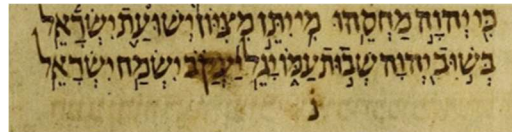 כִּי יְהוָה מַחְסֵהוּ מִי יִתֵּן מִצִּיּוֹן יְשׁוּעַת יִשְׂרָאֵל
בְּשׁוּב יְהוָה שְׁבוּת עַמּוֹ יָגֵל יַעֲקֹב יִשְׂמַח יִשְׂרָאֵל